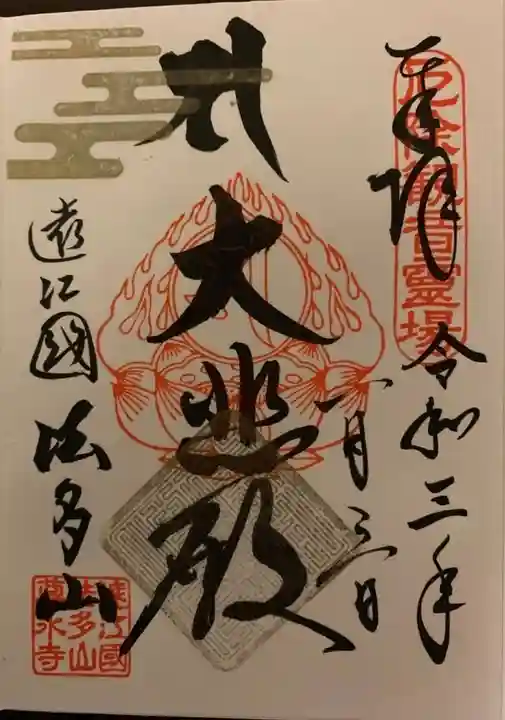 奉拝
厄除観音霊場
令和三年
一月三日
大悲殿
遠江國
法多山
遠江國
法多山
尊永寺